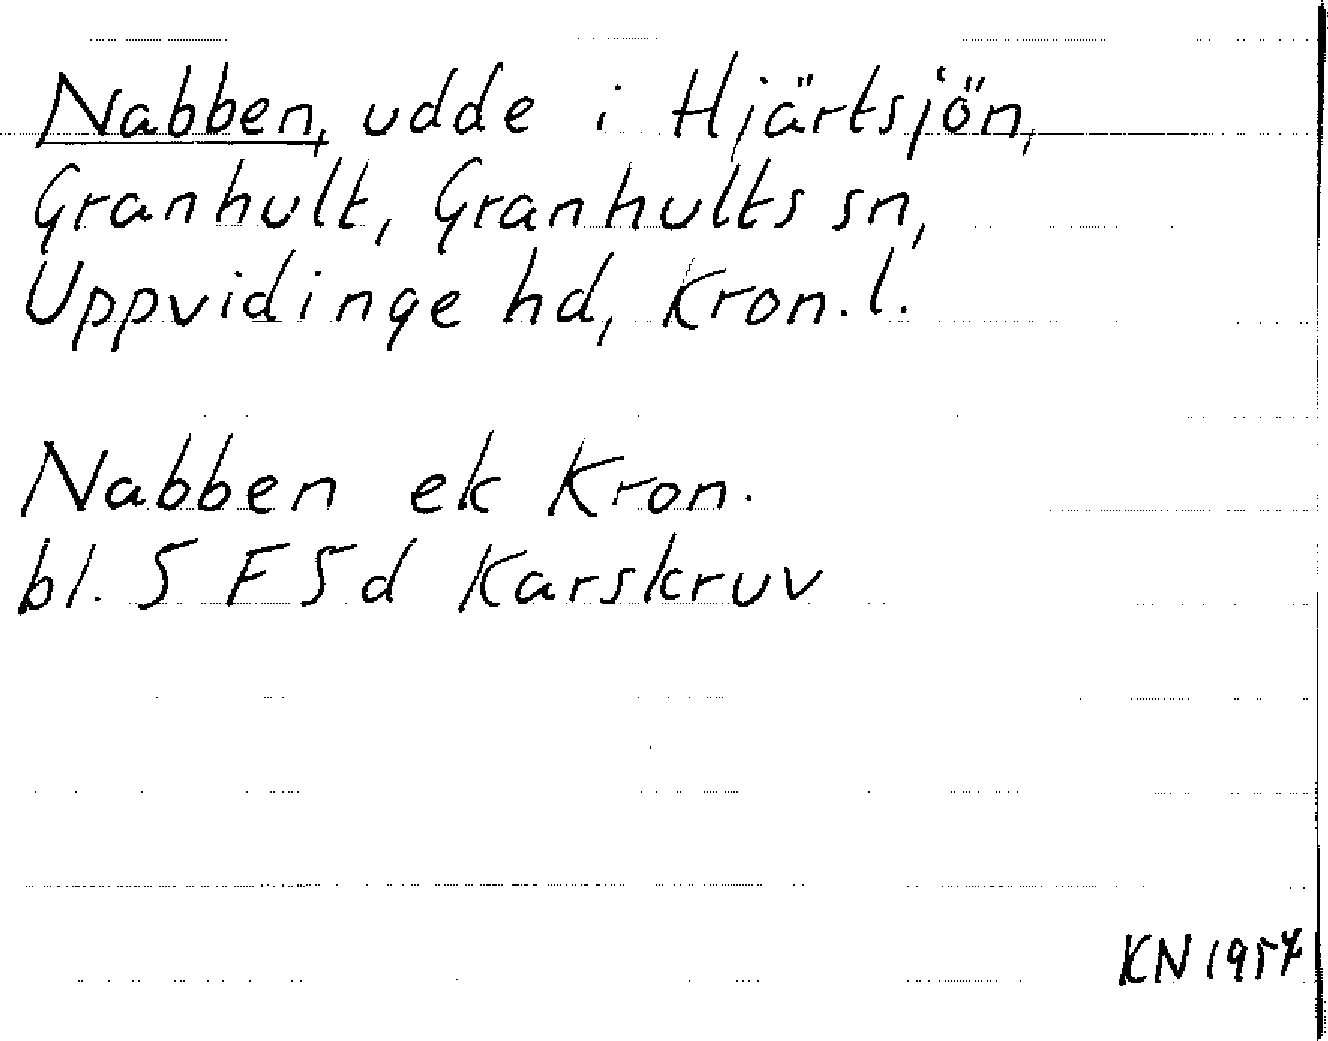 Nabben, udde i Hjärtsjön,
Granhult, Granhults sn,
Uppvidinge hd, Kron.l.
Nabben ek Kron.
bl. 5 F 5 d Karskruv
KN 1957